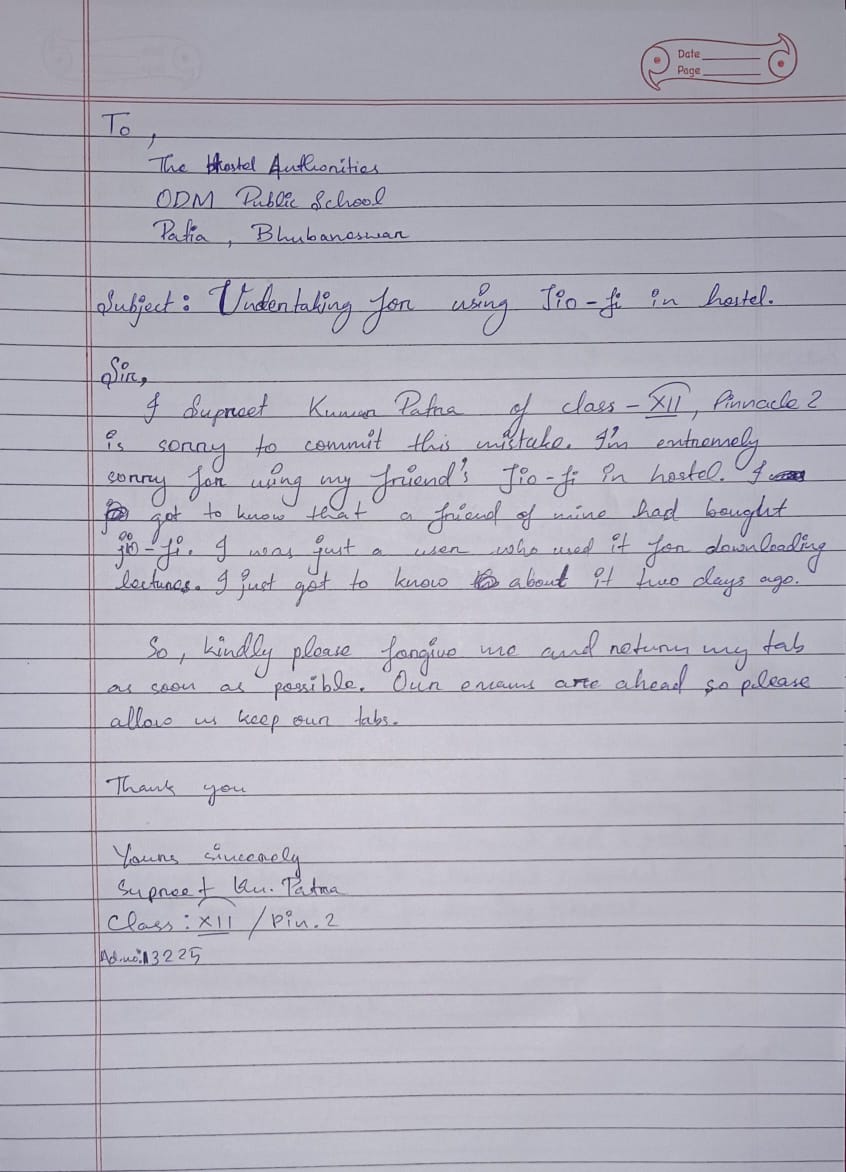 Date
Page
To,
The Hostel Authorities
ODM Public School
Patia, Bhubaneswar
Subject: Undertaking for using Jio-fi in hostel.
Sir,
I Supreet Kumar Patra of class-XII, Pinnacle 2
is sorry to commit this mistake. I'm extremely
sorry for using my friend's Jio-fi in hostel. I
got to know that a friend of mine had bought
jio-fi. I was just a user who used it for downloading
lectures. I just got to know about it two days ago.
So, kindly please forgive me and return my tab
as soon as possible. Our exams are ahead so please
allow us keep our tabs.
Thank you
Yours sincerely
Supreet Ku. Patra
Class: XII / Pin. 2
Ad.no: 13225